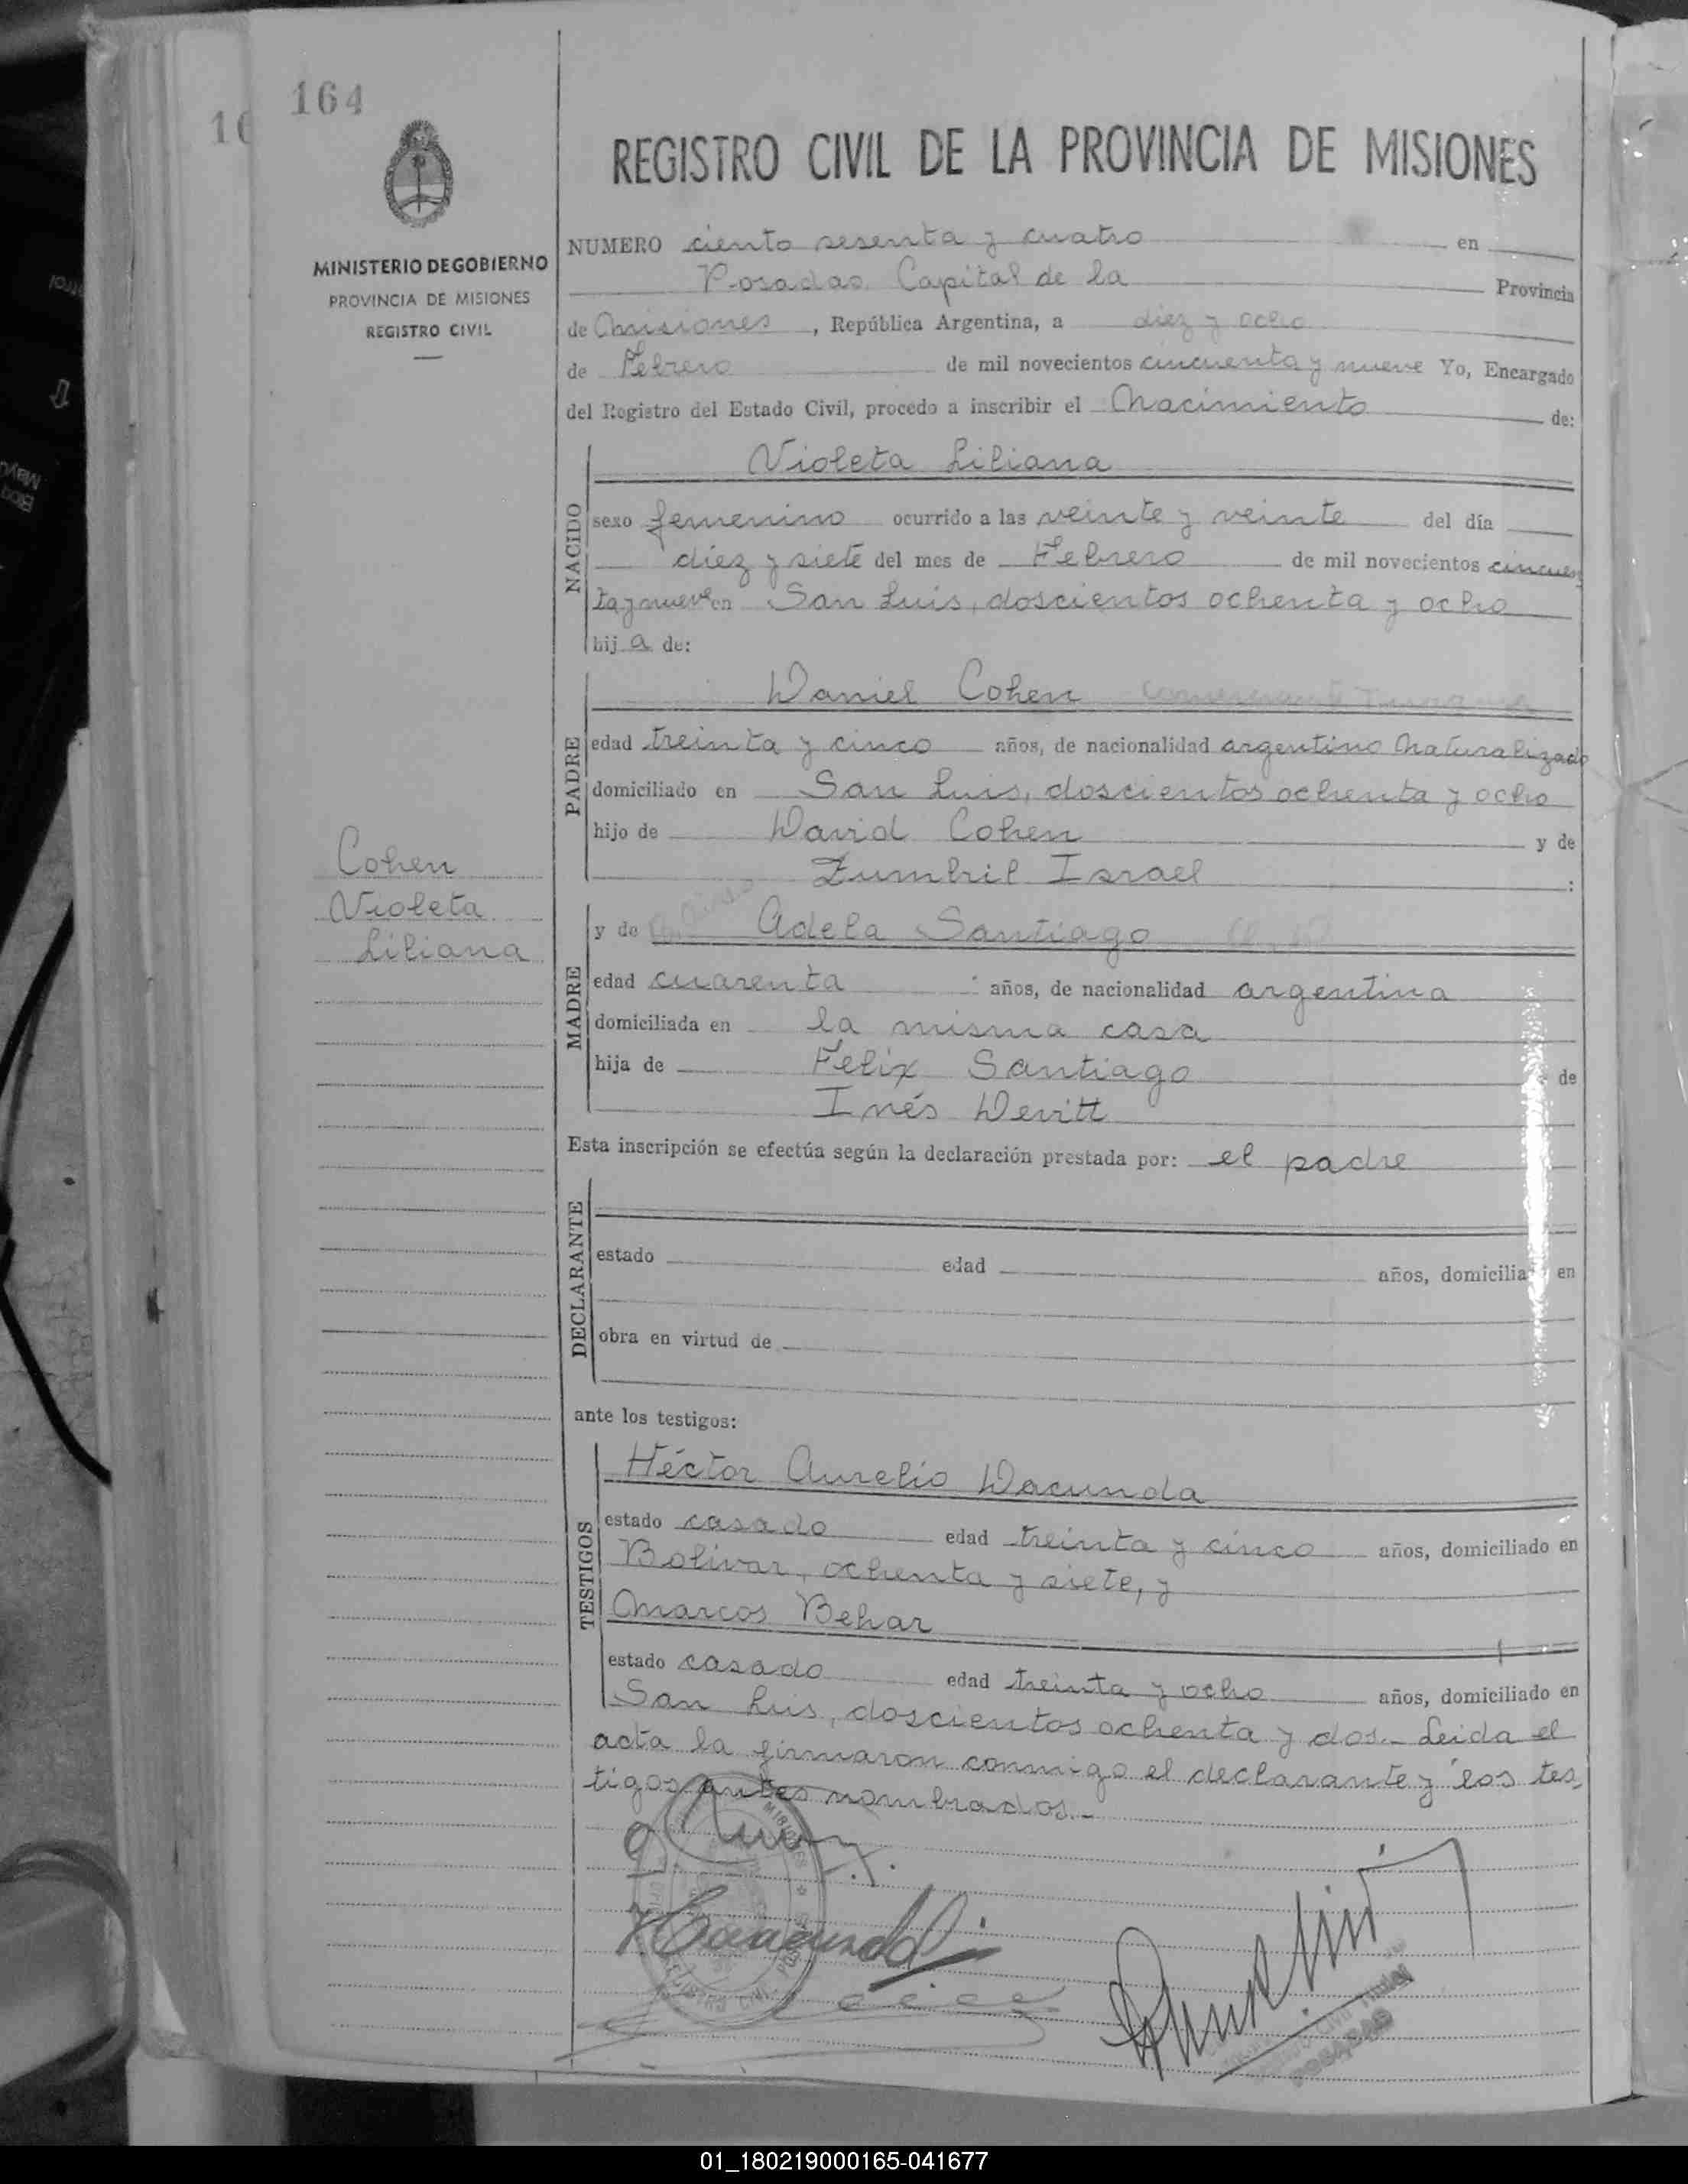 164
REGISTRO CIVIL DE LA PROVINCIA DE MISIONES
MINISTERIO DE GOBIERNO
PROVINCIA DE MISIONES
REGISTRO CIVIL
NUMERO ciento sesenta y cuatro en
Posadas Capital de la Provincia
de Misiones, República Argentina, a diez y ocho
de Febrero de mil novecientos cincuenta y nueve Yo, Encargado
del Registro del Estado Civil, procedo a inscribir el Nacimiento de:
NACIDO
Violeta Liliana
sexo femenino ocurrido a las veinte y veinte del día
diez y siete del mes de Febrero de mil novecientos cincuen
ta y nueve en San Luis, doscientos ochenta y ocho
hija de:
PADRE
Daniel Cohen
edad treinta y cinco años, de nacionalidad argentino Naturalizado
domiciliado en San Luis, doscientos ochenta y ocho
hijo de David Cohen y de
Zumbril Israel :
Cohen
Violeta
Liliana
MADRE
y de Adela Santiago
edad cuarenta años, de nacionalidad argentina
domiciliada en la misma casa
hija de Felix Santiago de
Inés Devitt
Esta inscripción se efectúa según la declaración prestada por: el padre
DECLARANTE
estado edad años, domicilia en
obra en virtud de
ante los testigos:
TESTIGOS
Héctor Aurelio Dacunda
estado casado edad treinta y cinco años, domiciliado en
Bolivar, ochenta y siete, y
Marcos Behar
estado casado edad treinta y ocho años, domiciliado en
San Luis, doscientos ochenta y dos.- Leida el
acta la firmaron conmigo el declarante y los tes
tigos antes nombrados.-
POSADAS
01_180219000165-041677